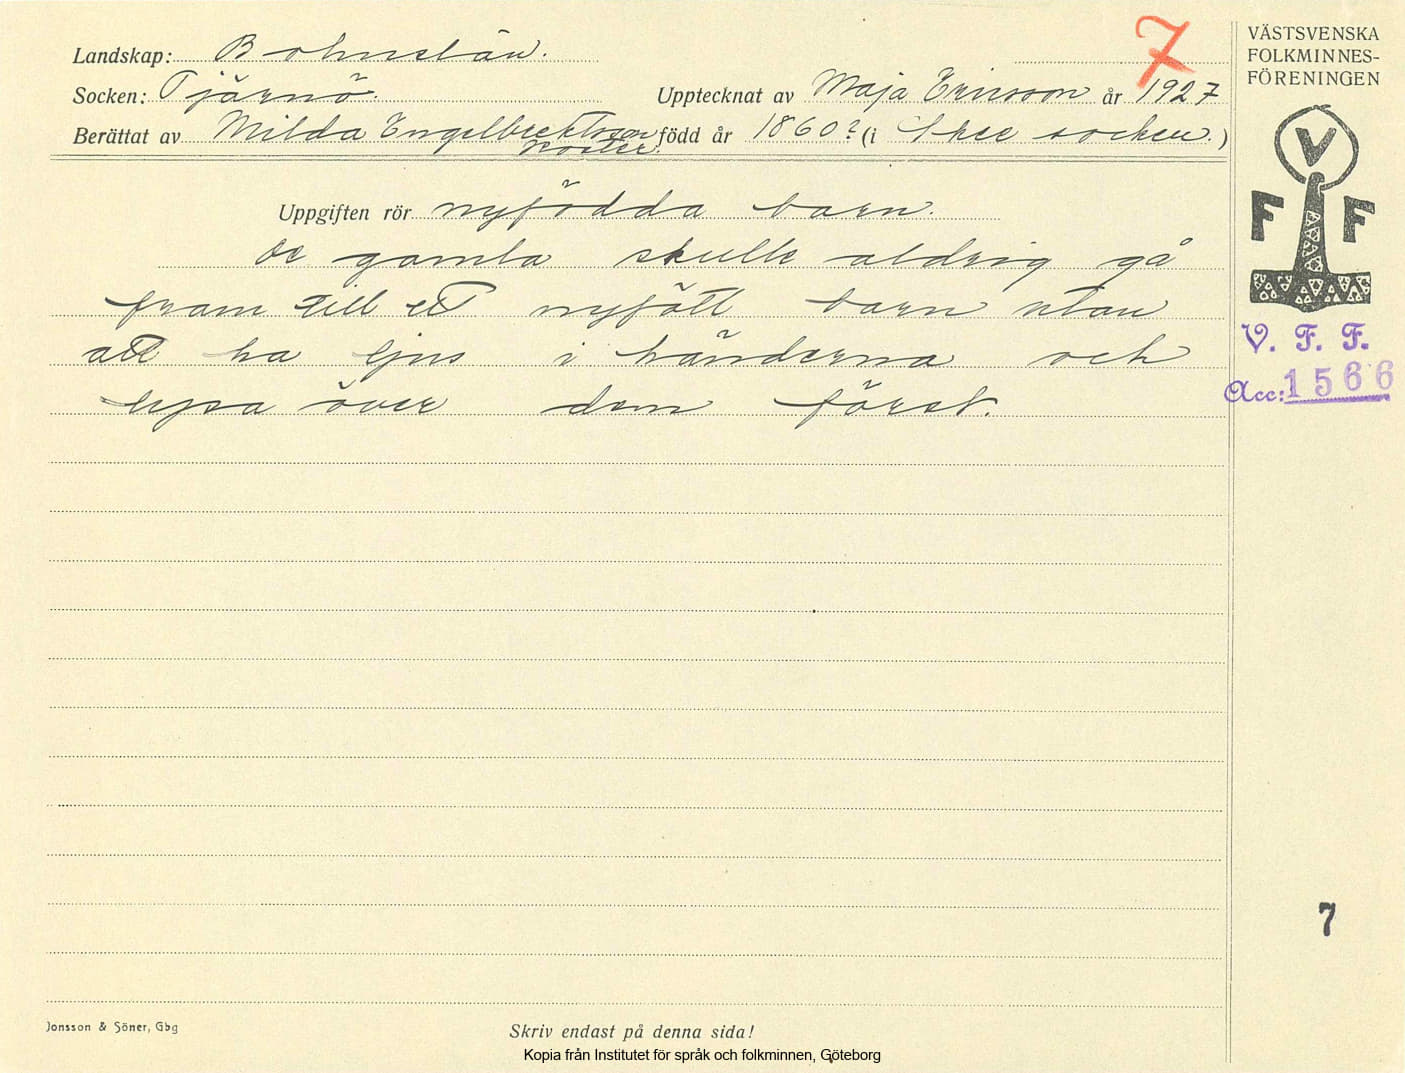 7
Landskap: Bohuslän.
Socken: Tjärnö. Upptecknat av Maja Ericsson år 1927
Berättat av Milda Engelbrektsson född år 1860? (i Skee socken.)
Koster.
Uppgiften rör nyfödda barn.
De gamla skulle aldrig gå
fram till ett nyfött barn utan
att ha ljus i händerna och
lysa över dem först.
VÄSTSVENSKA
FOLKMINNES-
FÖRENINGEN
V
F F
V. F. F.
Acc: 1566
7
Jonsson & Söner, Gbg
Skriv endast på denna sida!
Kopia från Institutet för språk och folkminnen, Göteborg